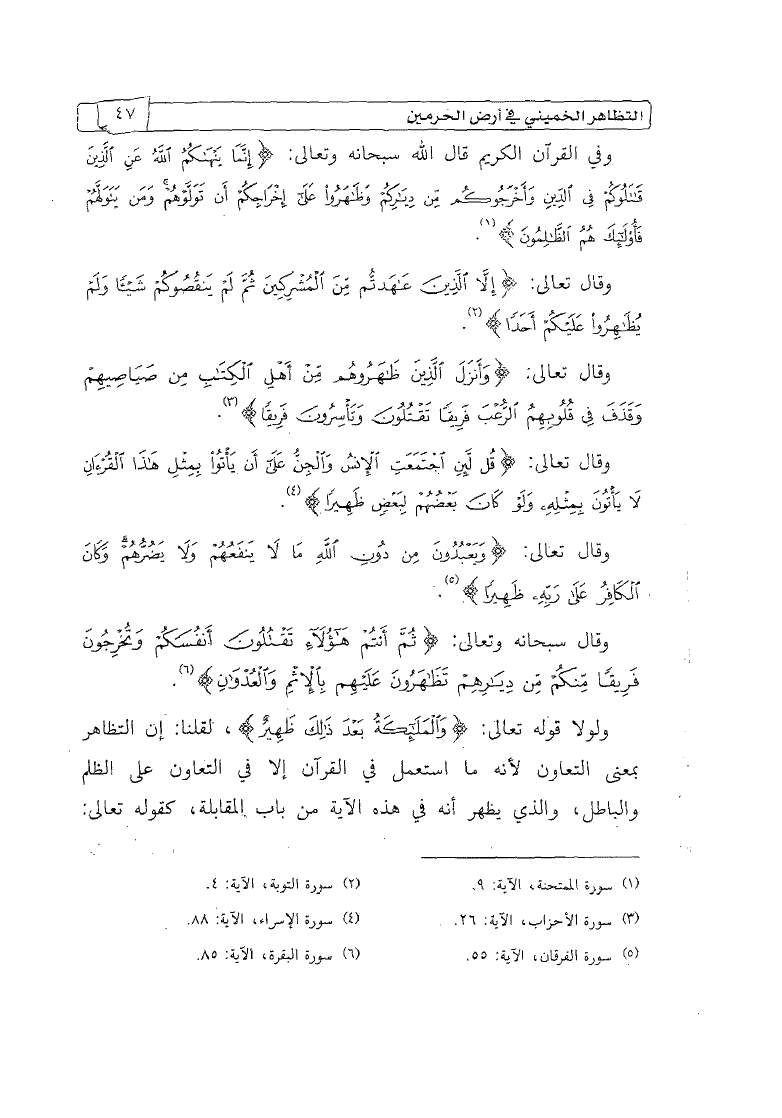 التظاهر الخميني في أرض الحرمين ٤٧
وفي القرآن الكريم قال الله سبحانه وتعالى: ﴿ إِنَّمَا يَنْهَىٰكُمُ ٱللَّهُ عَنِ ٱلَّذِينَ
قَـٰتَلُوكُمْ فِى ٱلدِّينِ وَأَخْرَجُوكُم مِّن دِيَـٰرِكُمْ وَظَـٰهَرُوا۟ عَلَىٰٓ إِخْرَاجِكُمْ أَن تَوَلَّوْهُمْ ۚ وَمَن يَتَوَلَّهُمْ
فَأُو۟لَـٰٓئِكَ هُمُ ٱلظَّـٰلِمُونَ ﴾(١).
وقال تعالى: ﴿ إِلَّا ٱلَّذِينَ عَـٰهَدتُّم مِّنَ ٱلْمُشْرِكِينَ ثُمَّ لَمْ يَنقُصُوكُمْ شَيْـًٔا وَلَمْ
يُظَـٰهِرُوا۟ عَلَيْكُمْ أَحَدًا ﴾(٢).
وقال تعالى: ﴿ وَأَنزَلَ ٱلَّذِينَ ظَـٰهَرُوهُم مِّنْ أَهْلِ ٱلْكِتَـٰبِ مِن صَيَاصِيهِمْ
وَقَذَفَ فِى قُلُوبِهِمُ ٱلرُّعْبَ فَرِيقًا تَقْتُلُونَ وَتَأْسِرُونَ فَرِيقًا ﴾(٣).
وقال تعالى: ﴿ قُل لَّئِنِ ٱجْتَمَعَتِ ٱلْإِنسُ وَٱلْجِنُّ عَلَىٰٓ أَن يَأْتُوا۟ بِمِثْلِ هَـٰذَا ٱلْقُرْءَانِ
لَا يَأْتُونَ بِمِثْلِهِۦ وَلَوْ كَانَ بَعْضُهُمْ لِبَعْضٍ ظَهِيرًا ﴾(٤).
وقال تعالى: ﴿ وَيَعْبُدُونَ مِن دُونِ ٱللَّهِ مَا لَا يَنفَعُهُمْ وَلَا يَضُرُّهُمْ ۗ وَكَانَ
ٱلْكَافِرُ عَلَىٰ رَبِّهِۦ ظَهِيرًا ﴾(٥).
وقال سبحانه وتعالى: ﴿ ثُمَّ أَنتُمْ هَـٰٓؤُلَآءِ تَقْتُلُونَ أَنفُسَكُمْ وَتُخْرِجُونَ
فَرِيقًا مِّنكُم مِّن دِيَـٰرِهِمْ تَظَـٰهَرُونَ عَلَيْهِم بِٱلْإِثْمِ وَٱلْعُدْوَٰنِ ﴾(٦).
ولولا قوله تعالى: ﴿ وَٱلْمَلَـٰٓئِكَةُ بَعْدَ ذَٰلِكَ ظَهِيرٌ ﴾، لقلنا: إن التظاهر
بمعنى التعاون لأنه ما استعمل في القرآن إلا في التعاون على الظلم
والباطل، والذي يظهر أنه في هذه الآية من باب المقابلة، كقوله تعالى:
(١) سورة الممتحنة، الآية: ٩. (٢) سورة التوبة، الآية: ٤.
(٣) سورة الأحزاب، الآية: ٢٦. (٤) سورة الإسراء، الآية: ٨٨.
(٥) سورة الفرقان، الآية: ٥٥. (٦) سورة البقرة، الآية: ٨٥.